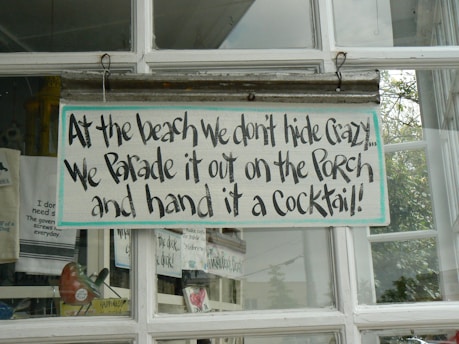 At the beach we don't hide crazy...
We Parade it out on the Porch
and hand it a cocktail!
I don
need s
The gover
screws
everyday.